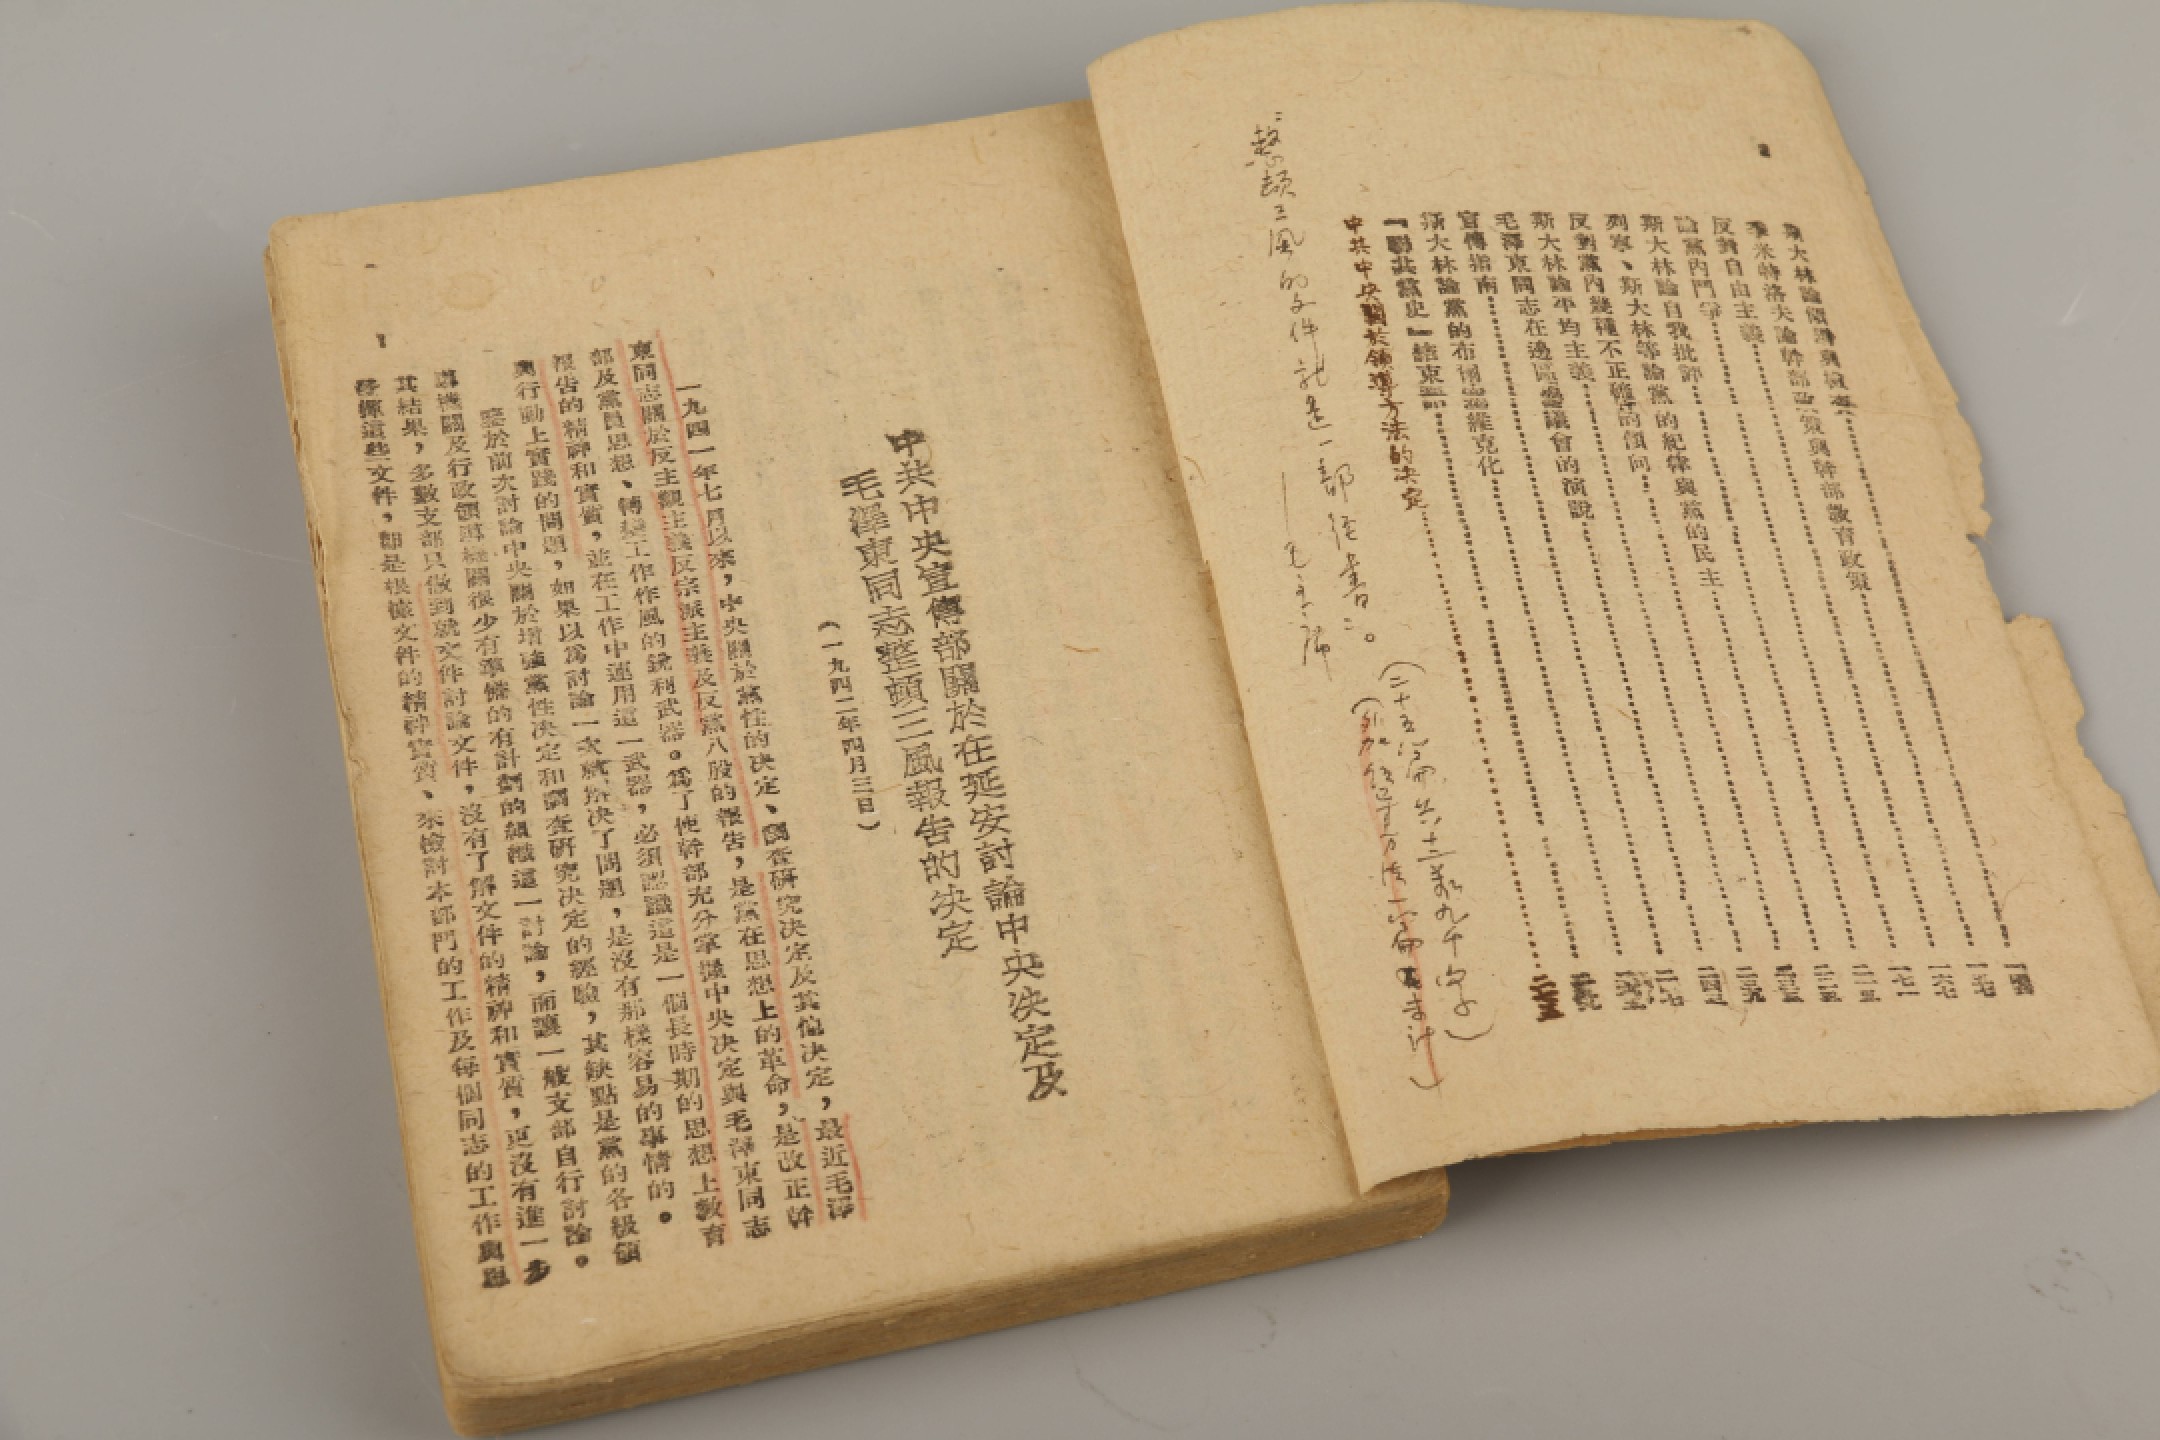 斯大林論領導與檢查
季米特洛夫論幹部政策與幹部敎育政策
反對自由主義
論黨內鬥爭
斯大林論自我批評
列寧、斯大林等論黨的紀律與黨的民主
反對黨內幾種不正確的傾向
斯大林論平均主義
毛澤東同志在邊區參議會的演說
宣傳指南
斯大林論黨的布爾塞維克化
『聯共黨史』結束語
中共中央關於領導方法的決定
“整頓三風的文件就是一部經書”。
—毛主席
(二十五篇共十二萬九千字)
一
中共中央宣傳部關於在延安討論中央決定及
毛澤東同志整頓三風報告的決定
(一九四二年四月三日)
一九四一年七月以來，中央關於黨性的決定、調查研究決定及其他決定，最近毛澤
東同志關於反主觀主義反宗派主義及反黨八股的報告，是黨在思想上的革命，是改正幹
部及黨員思想、轉變工作作風的銳利武器。爲了使幹部充分掌握中央決定與毛澤東同志
報告的精神和實質，並在工作中運用這一武器，必須認識這是一個長時期的思想上敎育
與行動上實踐的問題，如果以爲討論一次就解決了問題，是沒有那樣容易的事情的。
鑒於前次討論中央關於增強黨性決定和調查研究決定的經驗，其缺點是黨的各級領
導機關及行政領導機關很少有準備的有計劃的組織這一討論，而讓一般支部自行討論。
其結果，多數支部只做到就文件討論文件，沒有了解文件的精神和實質，更沒有進一步
發揮這些文件，卽是根據文件的精神實質、來檢討本部門的工作及每個同志的工作與思